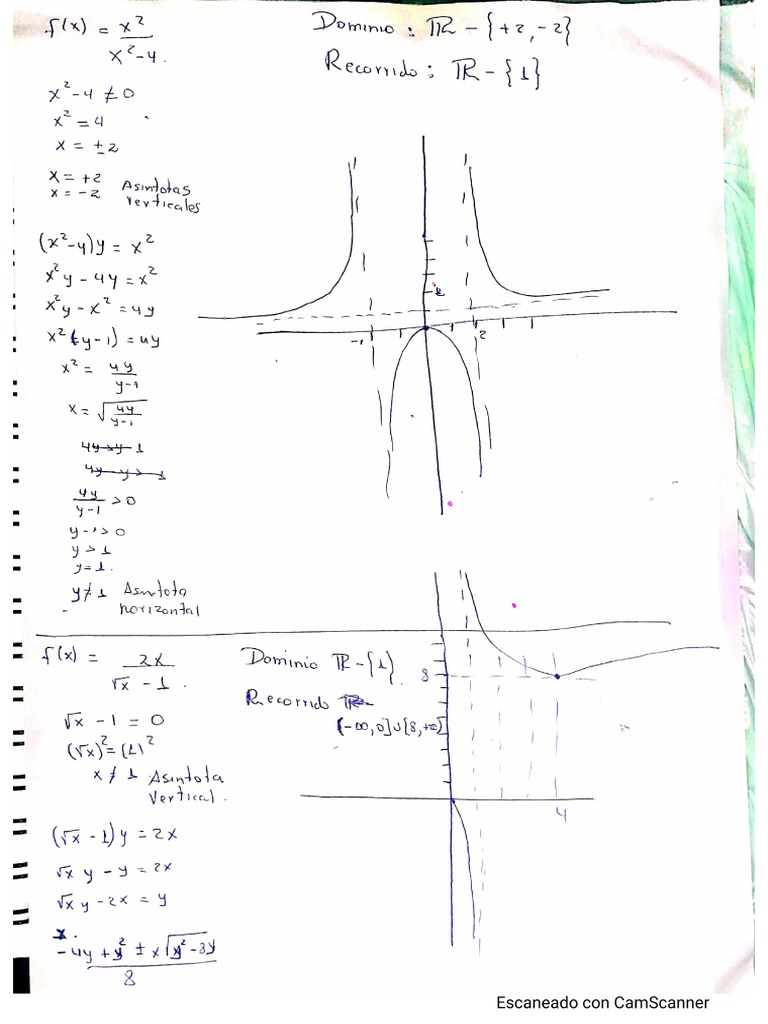 f(x) = x²/(x²-4)
Dominio : ℝ - {+2, -2}
Recorrido : ℝ - {1}
x²-4 ≠ 0
x² = 4
x = ±2
x = +2
x = -2 Asintotas verticales
(x²-4)y = x²
x²y - 4y = x²
x²y - x² = 4y
x²(y-1) = 4y
x² = 4y/(y-1)
x = √(4y/(y-1))
4y/(y-1) > 0
y-1 > 0
y > 1
y = 1.
y ≠ 1 Asintota horizontal
-1
2
f(x) = 2x/(√x - 1).
Dominio ℝ - {1}.
Recorrido
(-∞, 0] ∪ [8, +∞)
√x - 1 = 0
(√x)² = (1)²
x ≠ 1 Asintota Vertical.
(√x - 1)y = 2x
√x y - y = 2x
√x y - 2x = y
x.
-4y + y² ± x√(y² - 8y) / 8
8
4
Escaneado con CamScanner